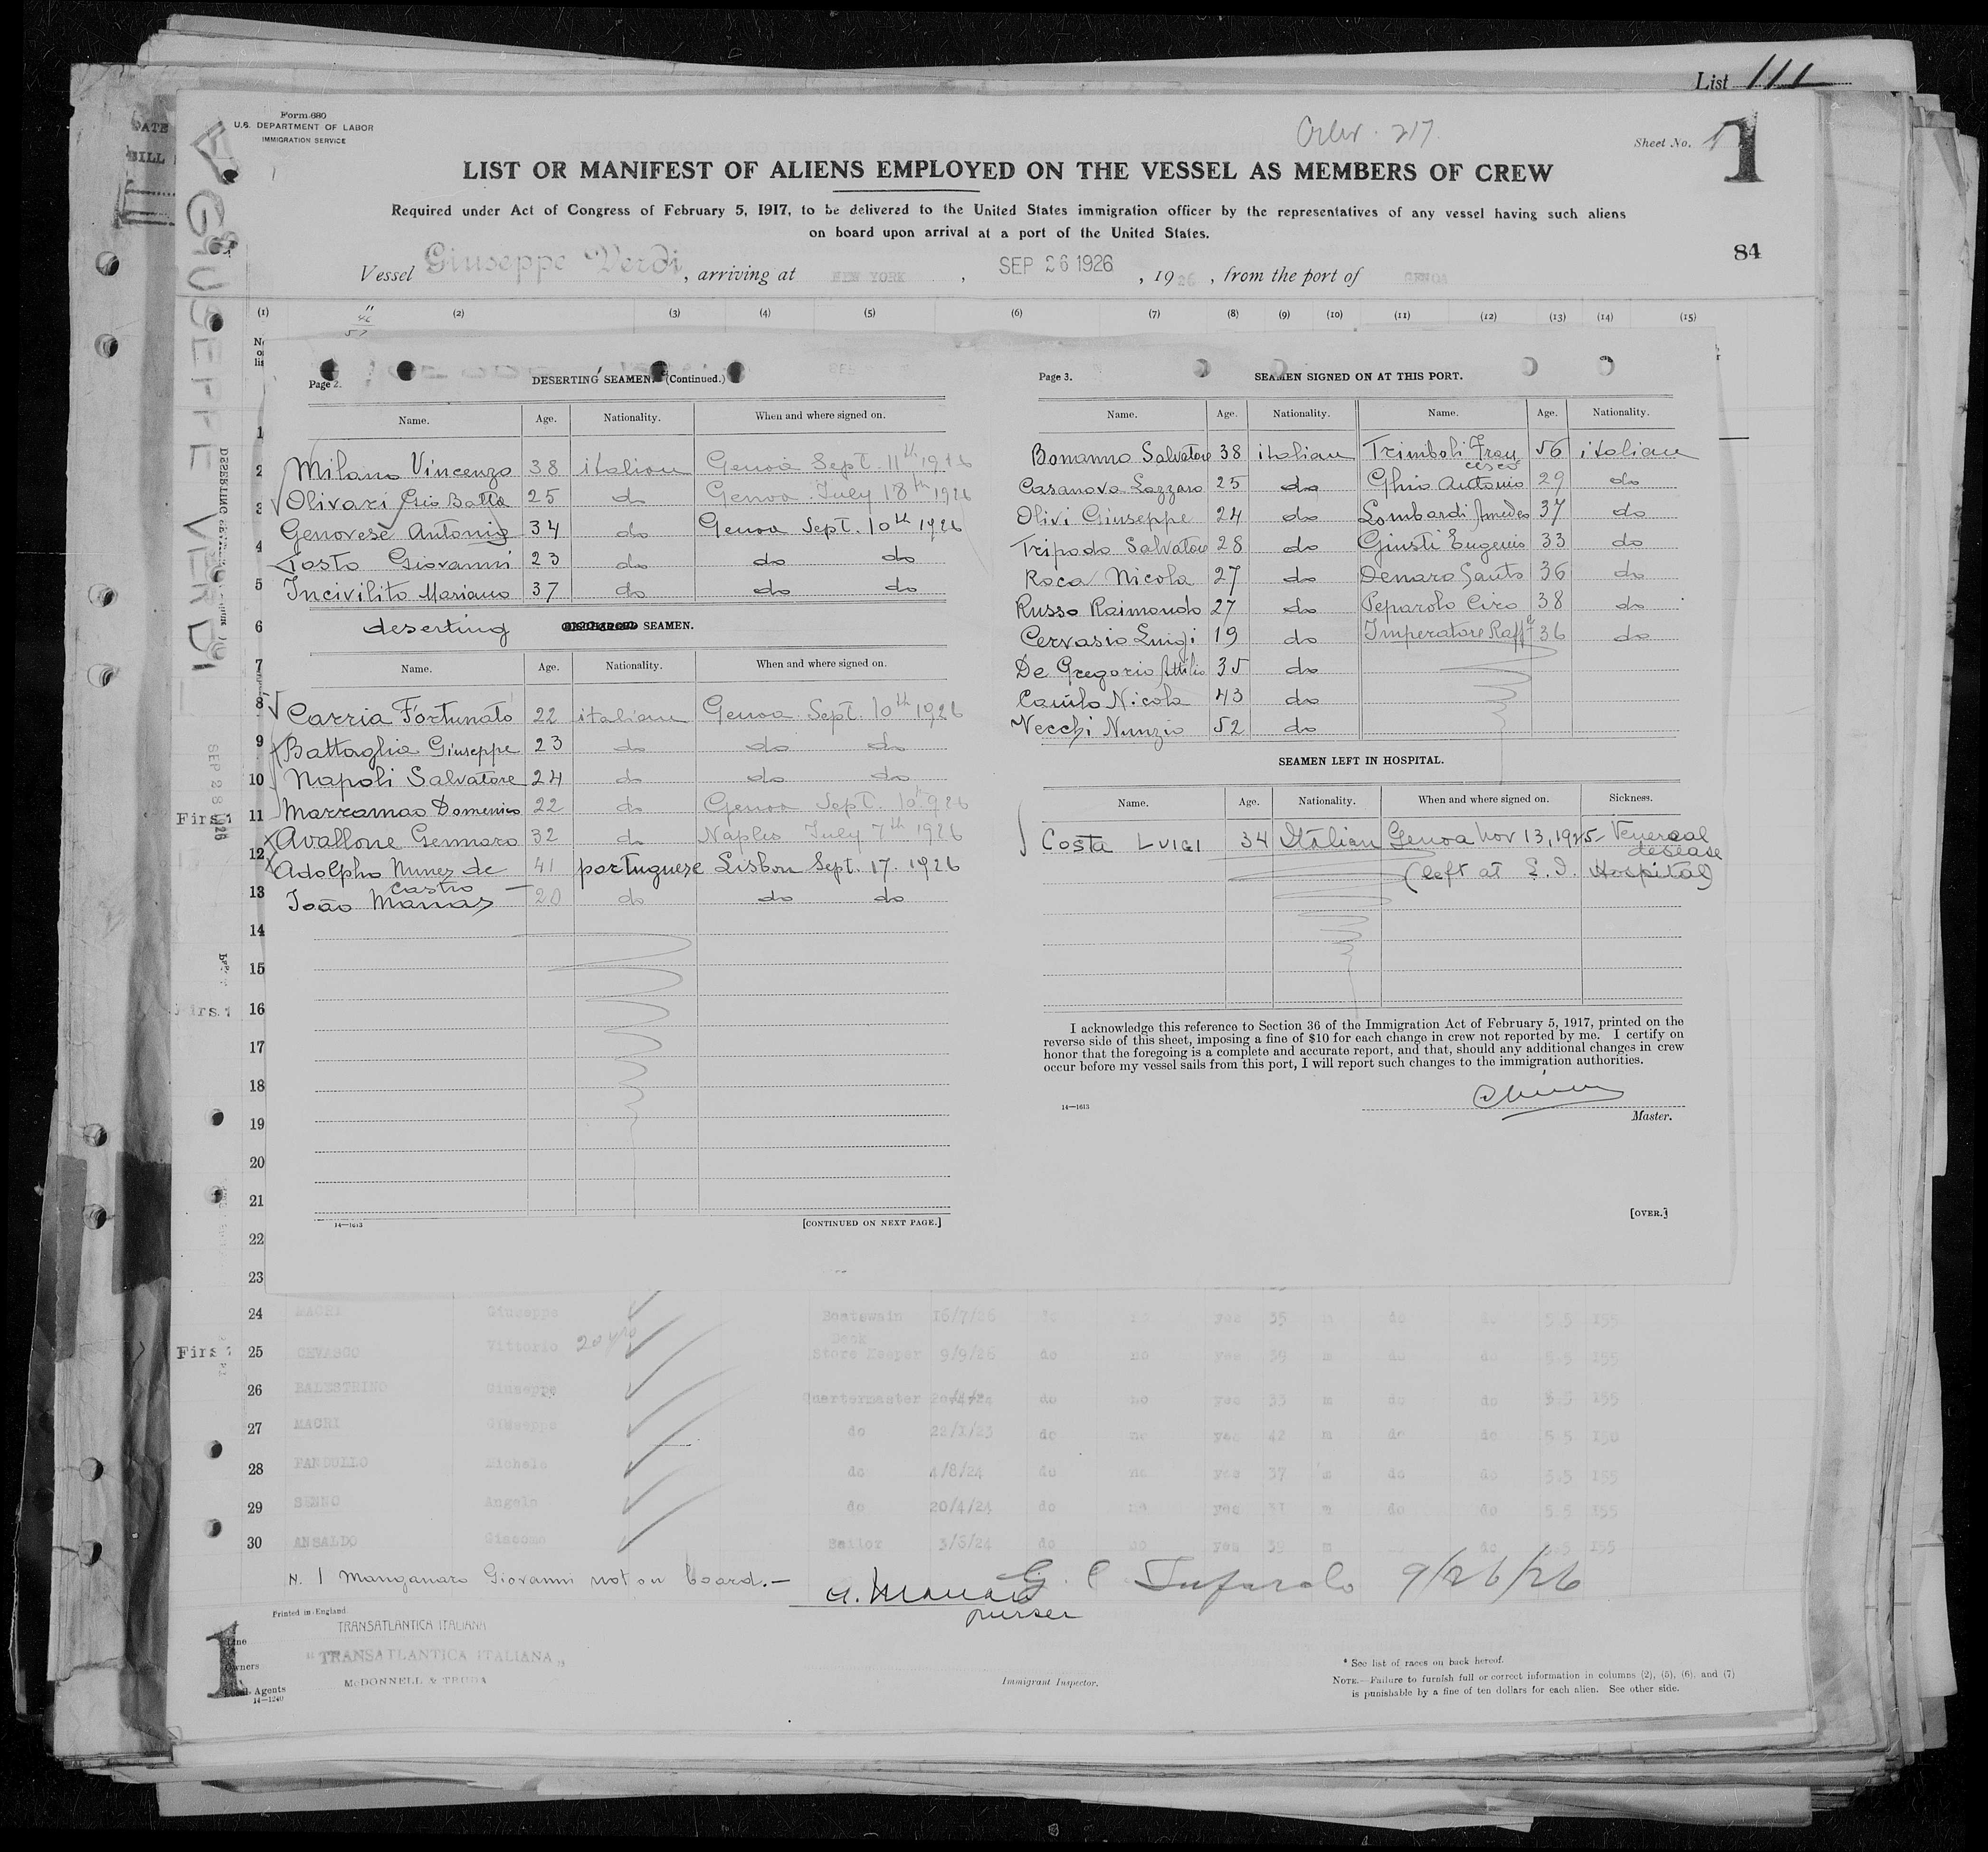 List 111
Form 680
U.S. DEPARTMENT OF LABOR
IMMIGRATION SERVICE
Crew. 217.
Sheet No. 1
1
LIST OR MANIFEST OF ALIENS EMPLOYED ON THE VESSEL AS MEMBERS OF CREW
Required under Act of Congress of February 5, 1917, to be delivered to the United States immigration officer by the representatives of any vessel having such aliens
on board upon arrival at a port of the United States.
84
Vessel Giuseppe Verdi, arriving at NEW YORK, SEP 26 1926, 1926, from the port of GENOA
(1) (2) (3) (4) (5) (6) (7) (8) (9) (10) (11) (12) (13) (14) (15)
GIUSEPPE VERDI
Page 2. DESERTING SEAMEN. (Continued.)
Name. Age. Nationality. When and where signed on.
Milano Vincenzo 38 italian Genoa Sept. 11th 1926
Olivari Gio Batta 25 do Genoa July 18th 1926
Genovese Antonio 34 do Genoa Sept. 10th 1926
Tosto Giovanni 23 do do do
Incivilito Mariano 37 do do do
deserting DISCHARGED SEAMEN.
Name. Age. Nationality. When and where signed on.
Carria Fortunato 22 italian Genoa Sept. 10th 1926
Battaglia Giuseppe 23 do do do
Napoli Salvatore 24 do do do
Marramao Domenico 22 do Genoa Sept. 10th 926
Avallone Gennaro 32 do Naples July 7th 1926
Adolpho Nunez de 41 portuguese Lisbon Sept. 17. 1926
Castro
João Marras 20 do do do
14—1613 [CONTINUED ON NEXT PAGE.]
Page 3. SEAMEN SIGNED ON AT THIS PORT.
Name. Age. Nationality. Name. Age. Nationality.
Bonanno Salvatore 38 italian Trimboli Fran 56 italian
cesco
Casanova Lazzaro 25 do Ghio Antonio 29 do
Olivi Giuseppe 24 do Lombardi Amedeo 37 do
Tripodo Salvatore 28 do Giusti Eugenio 33 do
Roca Nicola 27 do Denaro Santo 36 do
Russo Raimondo 27 do Peparolo Ciro 38 do
Cervasio Luigi 19 do Imperatore Raffe 36 do
De Gregorio Attilio 35 do
Camlo Nicola 43 do
Vecchi Nunzio 52 do
SEAMEN LEFT IN HOSPITAL.
Name. Age. Nationality. When and where signed on. Sickness.
Costa LUIGI 34 Italian Genoa Nov 13, 1925 - Veneraal
desease
(left at E. I. Hospital)
I acknowledge this reference to Section 36 of the Immigration Act of February 5, 1917, printed on the
reverse side of this sheet, imposing a fine of $10 for each change in crew not reported by me. I certify on
honor that the foregoing is a complete and accurate report, and that, should any additional changes in crew
occur before my vessel sails from this port, I will report such changes to the immigration authorities.
14—1613
Master.
[OVER.]
1
2
3
4
5
6
7
8
9
10
First 11
12
13
14
15
First 16
17
18
19
20
21
22
23
24 MACRI Giuseppe Boatswain 16/7/26 do no yes 35 m do do 5.5 155
First 25 CEVASCO Vittorio 20 yrs Deck Store Keeper 9/9/26 do no yes 39 m do do 5.5 155
26 BALESTRINO Giuseppe Quartermaster 20/4/24 do no yes 33 m do do 5.5 155
27 MACRI Giuseppe do 22/1/23 do no yes 42 m do do 5.5 150
28 FANDULLO Michele do 4/8/24 do no yes 37 m do do 5.5 155
29 SENNO Angelo do 20/4/24 do no yes 31 m do do 5.5 155
30 ANSALDO Giacomo Sailor 3/6/24 do no yes 39 m do 5.5 155
N. 1 Manganaro Giovanni not on board.—
purser
9/26/26
Printed in England
1
Line TRANSATLANTICA ITALIANA
Owners "TRANSATLANTICA ITALIANA„
Local Agents McDONNELL & TRUDA
14—1240
Immigrant Inspector.
* See list of races on back hereof.
NOTE.—Failure to furnish full or correct information in columns (2), (5), (6), and (7)
is punishable by a fine of ten dollars for each alien. See other side.